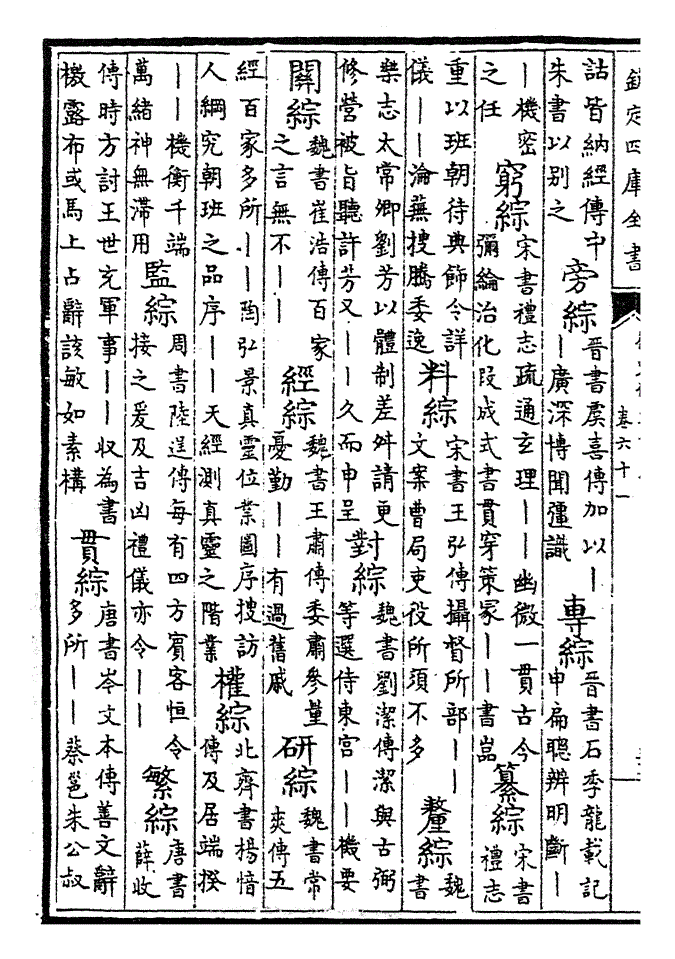 欽定四庫全書
卷六十一
詁皆納經傳中
朱書以别之
旁綜
晉書虞喜傳加以丨
丨廣深博聞彊識
專綜
晉書石季龍載記
申扁聰辨明斷丨
丨機密
之任
窮綜
宋書禮志疏通玄理丨丨幽微一貫古今
彌綸治化段成式書貫穿策冢丨丨書嵓
纂綜
宋書
禮志
重以班朝待典飾令詳
儀丨丨淪蕪搜騰委逸
料綜
宋書王弘傳攝督所部丨丨
文案曹局吏役所須不多
釐綜
魏
書
樂志太常卿劉芳以體制差舛請更
修營被旨聽許芳又丨丨久而申呈
對綜
魏書劉潔傳潔與古弼
等選侍東宮丨丨機要
關綜
魏書崔浩傳百家
之言無不丨丨
經綜
魏書王肅傳委肅參量
憂勤丨丨有過舊戚
研綜
魏書常
爽傳五
經百家多所丨丨陶弘景真靈位業圖序搜訪
人綱究朝班之品序丨丨天經測真靈之階業
權綜
北齊書楊愔
傳及居端揆
丨丨機衡千端
萬緒神無滯用
監綜
周書陸逞傳每有四方賓客恒令
接之爰及吉凶禮儀亦令丨丨
繁綜
唐書
薛收
傳時方討王世充軍事丨丨収為書
檄露布或馬上占辭該敏如素構
貫綜
唐書岑文本傳善文辭
多所丨丨蔡邕朱公叔